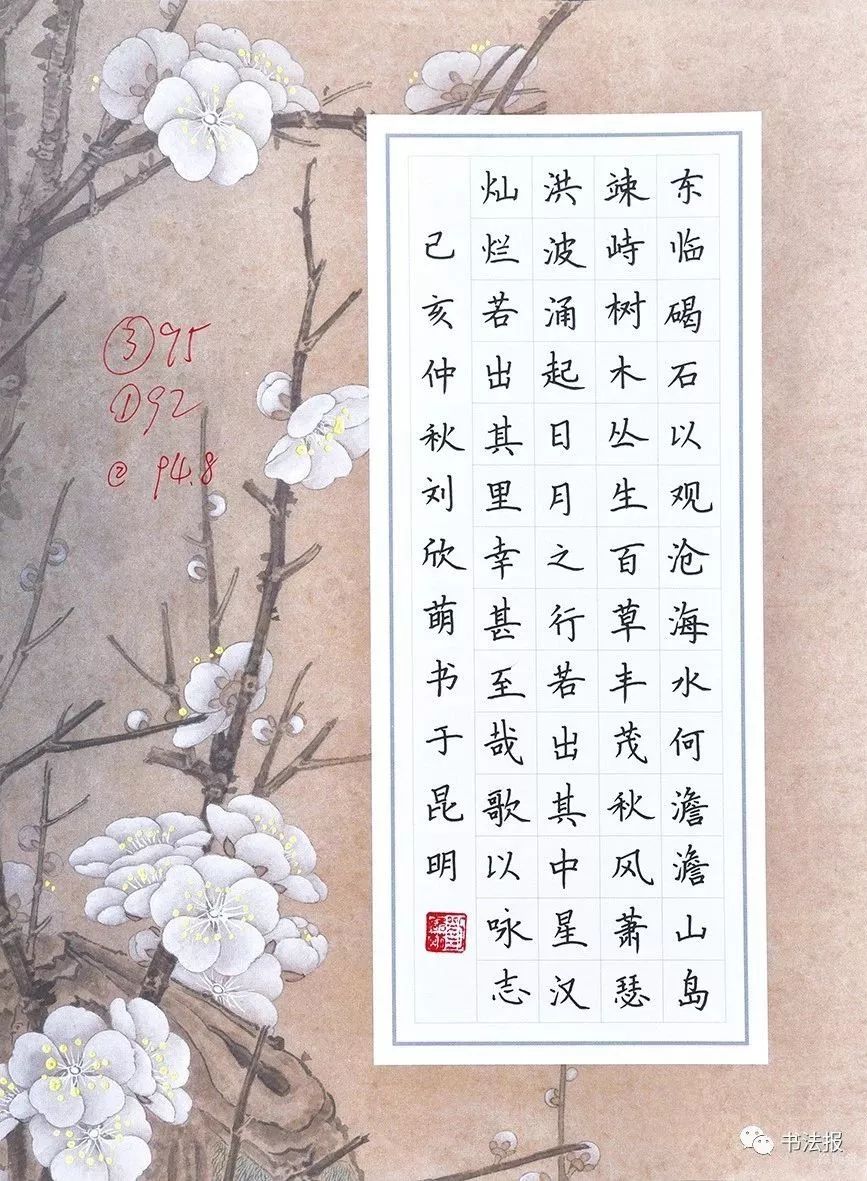 东临碣石以观沧海水何澹澹山岛
竦峙树木丛生百草丰茂秋风萧瑟
洪波涌起日月之行若出其中星汉
灿烂若出其里幸甚至哉歌以咏志
己亥仲秋刘欣萌书于昆明
③95
①92
②94.8
书法报